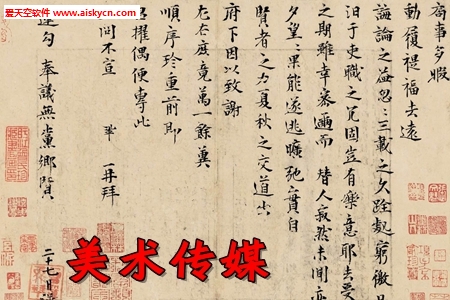 爱天空软件 www.aiskycn.com
局事多暇
動履禔福去遠
誨論之益忽々三載之久跧處窮徼日
汩于吏職之冗固豈有樂意耶去受
之期雖幸密邇而替人寂然未聞亦
夕望々果能遂逃曠弛之責自
賢者之力夏秋之交道出
府下因以致謝
左右庶竟萬一餘冀
順序珍重前即
召擢偶便專此
問不宣 鞏再拜
運勾奉議無黨鄉賢
二十七日謹
美术传媒